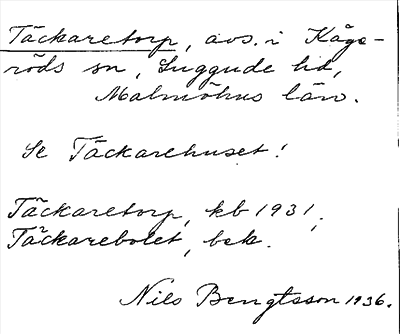 Täckaretorp, avs. i Kåge-
röds sn, Luggude hd,
Malmöhus län.
Se Täckarehuset!
Täckaretorp, kb 1931,
Täckarebolet, bsk.
Nils Bengtsson 1936.